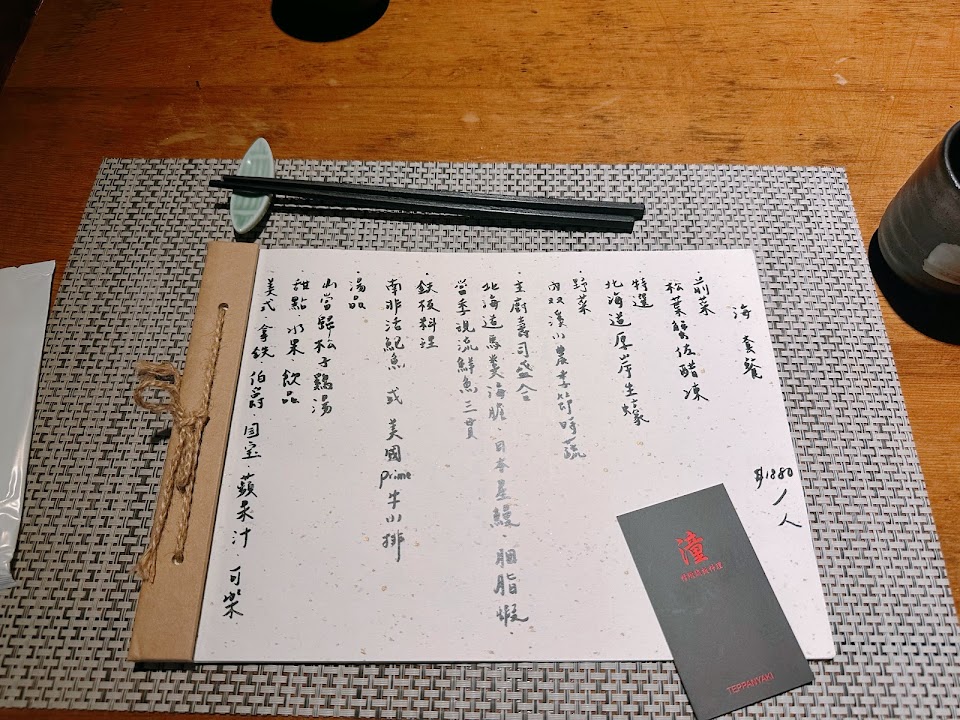 海套餐
$1880/人
前菜
松葉蟹佐醋凍
特選
北海道厚岸生蠔
野菜
內双溪小農季節時蔬
主廚壽司盛合
北海道馬糞海膽·日本星鰻·胭脂蝦·
當季現流鮮魚三貫
·鉄板料理
南非活鮑魚 或 美國prime牛小排
湯品
當歸松子雞湯
甜點 水果 飲品
美式 拿鉄 伯爵·国宝 蘋果汁 可樂
潼
TEPPANYAKI